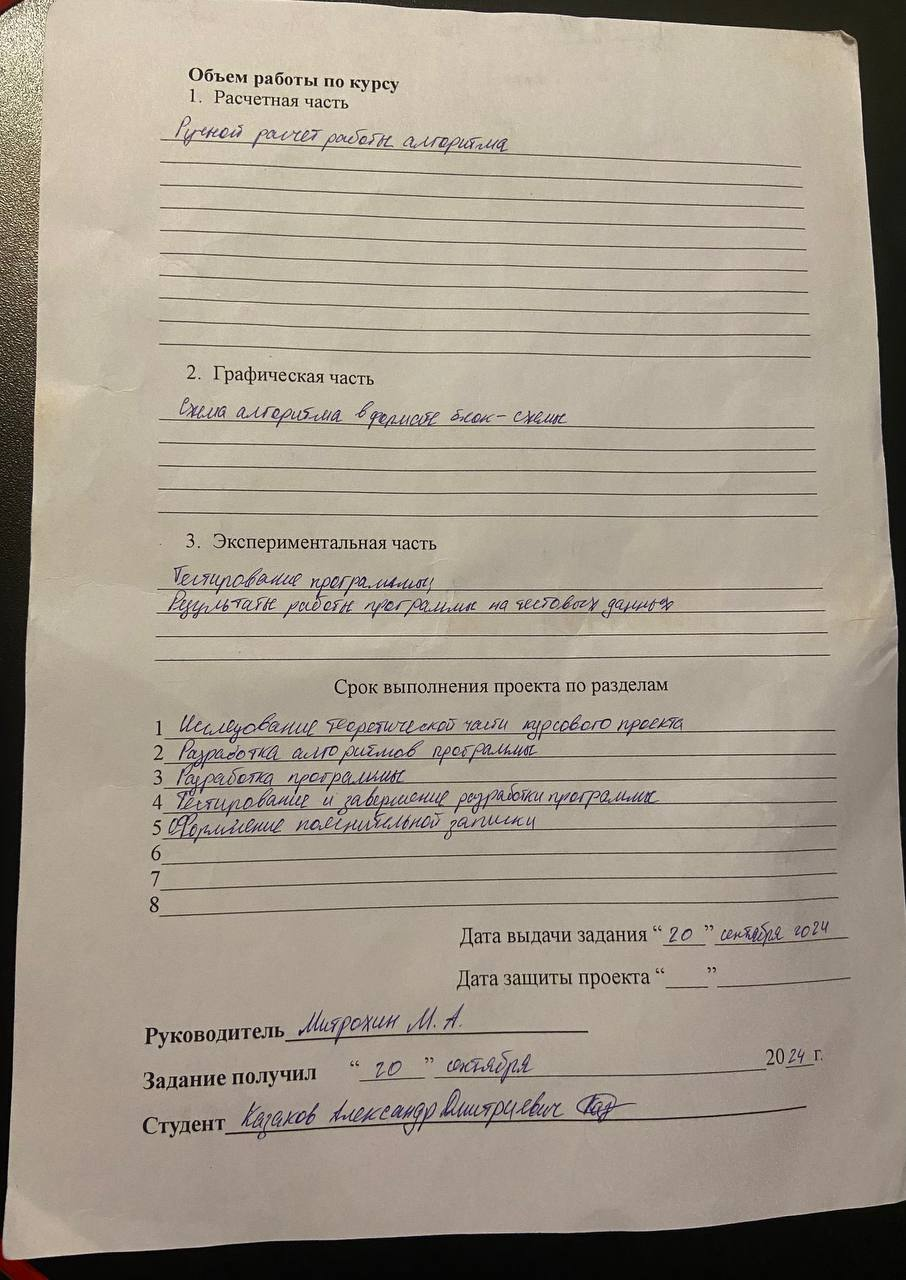 Объем работы по курсу
1. Расчетная часть
Ручной расчет работы алгоритма
2. Графическая часть
Схема алгоритма в формате блок-схемы
3. Экспериментальная часть
Тестирование программы,
Результаты работы программы на тестовых данных
Срок выполнения проекта по разделам
1 Исследование теоретической части курсового проекта
2 Разработка алгоритмов программы
3 Разработка программы
4 Тестирование и завершение разработки программы
5 Оформление пояснительной записки
6
7
8
Дата выдачи задания “20” сентября 2024
Дата защиты проекта “ ”
Руководитель Митрохин М. А.
Задание получил “20” сентября 2024 г.
Студент Казаков Александр Дмитриевич